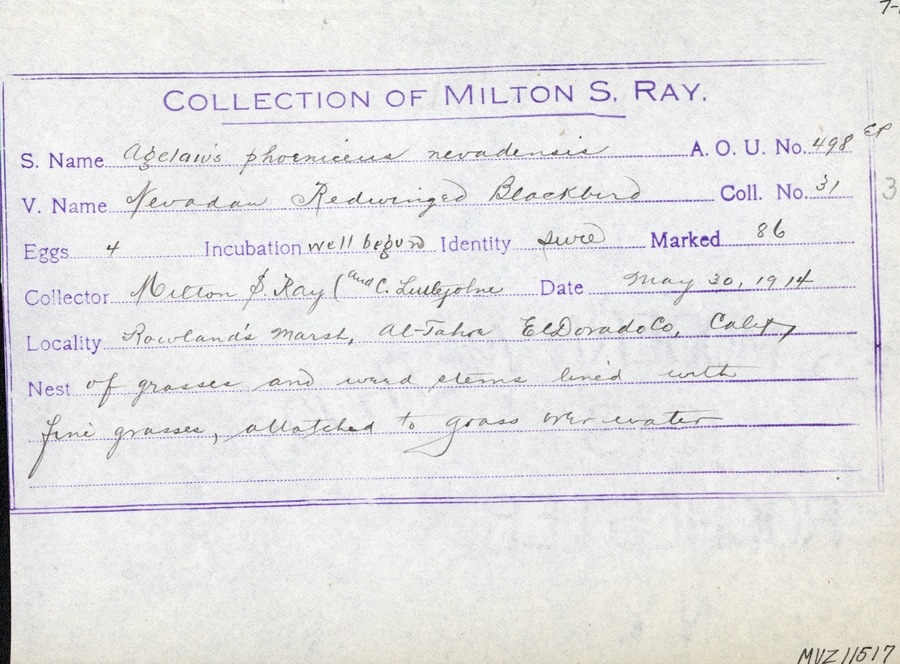 COLLECTION OF MILTON S. RAY.
S. Name Agelaius phoeniceus nevadensis A. O. U. No. 498
V. Name Nevadan Redwinged Blackbird Coll. No. 31
Eggs 4 Incubation well begun Identity sure Marked 86
Collector Milton S Ray (and C. Littlejohn Date May 30, 1914
Locality Rowland's Marsh, Al-Tahoe El Dorado Co, Calif
Nest of grasses and weed stems lined with
fine grasses, attatched to grass over water
MVZ 11517